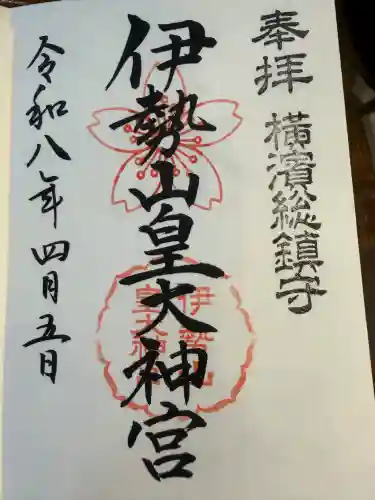 奉拝
横濱総鎮守
伊勢山皇大神宮
伊勢山
皇大神宮
令和八年四月五日